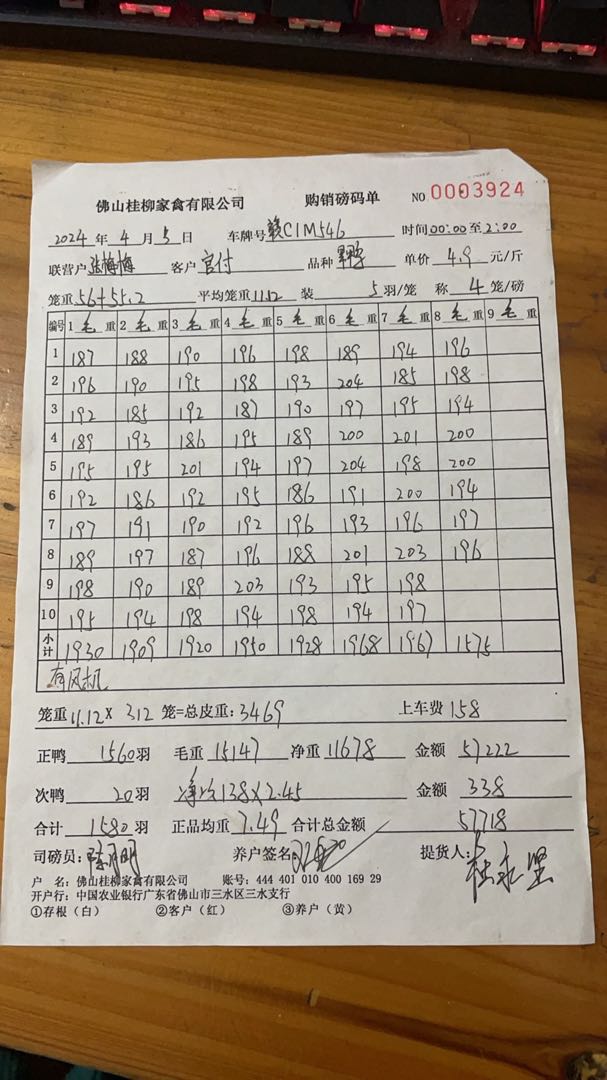 佛山桂柳家禽有限公司 购销磅码单 NO 0003924
2024 年 4 月 5 日 车牌号 赣C1M546 时间 00:00 至 2:00
联营户 张梅梅 客户 官付 品种 单价 4.9 元/斤
笼重 56+55.2 平均笼重 11.12 装 5 羽/笼 称 4 笼/磅
编号 1 毛 重 2 毛 重 3 毛 重 4 毛 重 5 毛 重 6 毛 重 7 毛 重 8 毛 重 9 毛 重
1 187 188 190 196 198 189 194 196
2 196 190 195 198 193 204 185 198
3 192 185 192 187 190 197 195 194
4 189 193 186 195 189 200 201 200
5 195 195 201 194 197 204 198 200
6 192 186 192 195 186 191 200 194
7 197 191 190 192 196 193 196 197
8 189 197 187 196 188 201 203 196
9 198 190 189 203 193 195 198
10 195 194 198 194 198 194 197
小计 1930 1909 1920 1950 1928 1968 1967 1575
有风机
笼重 11.12 × 312 笼=总皮重: 3469 上车费 158
正鸭 1560 羽 毛重 15147 净重 11678 金额 57222
次鸭 20 羽 净重 138×2.45 金额 338
合计 1580 羽 正品均重 7.49 合计总金额 57718
司磅员: 养户签名 提货人:
户 名: 佛山桂柳家禽有限公司 账号: 444 401 010 400 169 29
开户行: 中国农业银行广东省佛山市三水区三水支行
①存根(白) ②客户(红) ③养户(黄)